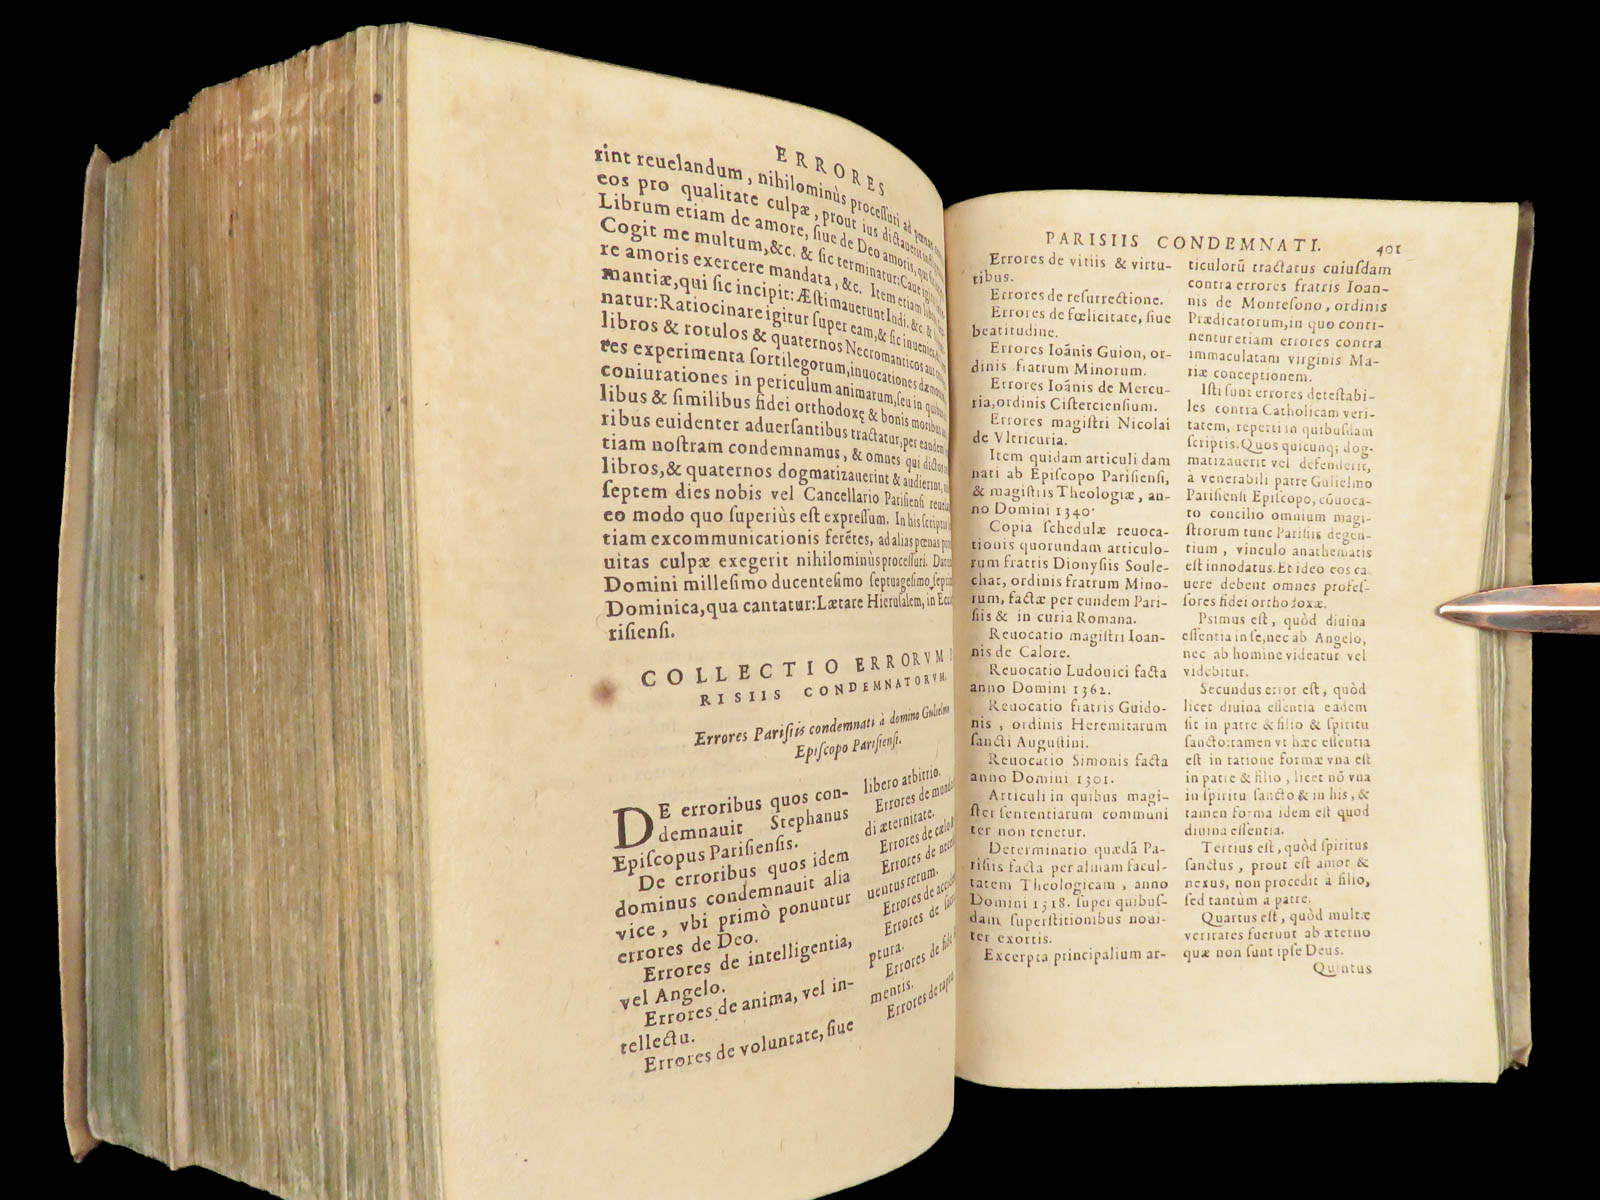 ERRORES
rint reuelandum, nihilominùs processuri ad pœnas
eos pro qualitate culpæ, prout ius dictauerit
Librum etiam de amore, siue de Deo amoris, qui
Cogit me multum, &c. & sic terminatur: Caue igitur
re amoris exercere mandata, &c. Item etiam
mantiæ, qui sic incipit: Æstimauerunt Indi. &c. &
natur: Ratiocinare igitur super eam, & sic inuenies,
libros & rotulos & quaternos Necromanticos aut
res experimenta sortilegorum, inuocationes dæmonum,
coniurationes in periculum animarum, seu in quibus
libus & similibus fidei orthodoxę & bonis moribus
ribus euidenter aduersantibus tractatur, per eandem
tiam nostram condemnamus, & omnes qui dictos
libros, & quaternos dogmatizauerint & audierint,
septem dies nobis vel Cancellario Parisiensi
eo modo quo superiùs est expressum. In his scriptis
tiam excommunicationis ferētes, ad alias pœnas
uitas culpæ exegerit nihilominùs processuri.
Domini millesimo ducentesimo septuagesimo
Dominica, qua cantatur: Lætare Hierusalem, in
risiensi.
COLLECTIO ERRORVM
RISIIS CONDEMNATORVM.
Errores Parisiis condemnati à domino Gulielmo
Episcopo Parisiensi.
DE erroribus quos con-
demnauit Stephanus
Episcopus Parisiensis.
De erroribus quos idem
dominus condemnauit alia
vice, vbi primò ponuntur
errores de Deo.
Errores de intelligentia,
vel Angelo.
Errores de anima, vel in-
tellectu.
Errores de voluntate, siue
libero arbitrio.
Errores de
di æternitate.
Errores de
Errores de
uentus rerum.
Errores de
Errores de
ptura.
Errores de
mentis.
Errores de
PARISIIS CONDEMNATI. 401
Errores de vitiis & virtu-
tibus.
Errores de resurrectione.
Errores de fœlicitate, siue
beatitudine.
Errores Ioānis Guion, or-
dinis fratrum Minorum.
Errores Ioānis de Mercu-
ria, ordinis Cisterciensium.
Errores magistri Nicolai
de Vltricuria.
Item quidam articuli dam
nati ab Episcopo Parisiensi,
& magistris Theologiæ, an-
no Domini 1340.
Copia schedulæ reuoca-
tionis quorundam articulo-
rum fratris Dionysiis Soule-
chat, ordinis fratrum Mino-
rum, factæ per eundem Pari-
siis & in curia Romana.
Reuocatio magistri Ioan-
nis de Calore.
Reuocatio Ludouici facta
anno Domini 1362.
Reuocatio fratris Guido-
nis, ordinis Heremitarum
sancti Augustini.
Reuocatio Simonis facta
anno Domini 1301.
Articuli in quibus magi-
ster sententiarum communi
ter non tenetur.
Determinatio quædā Pa-
risiis facta per almam facul-
tatem Theologicam, anno
Domini 1318. super quibus-
dam superstitionibus noui-
ter exortis.
Excerpta principalium ar-
ticulorū tractatus cuiusdam
contra errores fratris Ioan-
nis de Montesono, ordinis
Prædicatorum, in quo conti-
nentur etiam errores contra
immaculatam virginis Ma-
riæ conceptionem.
Isti sunt errores detestabi-
les contra Catholicam veri-
tatem, reperti in quibusdam
scriptis. Quos quicunq; dog-
matizauerit vel defenderit,
à venerabili patre Gulielmo
Parisiensi Episcopo, cōuoca-
to concilio omnium magi-
strorum tunc Parisiis degen-
tium, vinculo anathematis
est innodatus. Et ideo eos ca-
uere debent omnes profes-
sores fidei orthodoxæ.
Psimus est, quòd diuina
essentia in se, nec ab Angelo,
nec ab homine videatur vel
videbitur.
Secundus error est, quòd
licet diuina essentia eadem
sit in patre & filio & spiritu
sancto: tamen vt hæc essentia
est in ratione formæ vna est
in patre & filio, licet nō vna
in spiritu sancto & in his, &
tamen forma idem est quod
diuina essentia.
Tertius est, quòd spiritus
sanctus, prout est amor &
nexus, non procedit à filio,
sed tantùm à patre.
Quartus est, quòd multæ
veritates fuerunt ab æterno
quæ non sunt ipse Deus.
Quintus